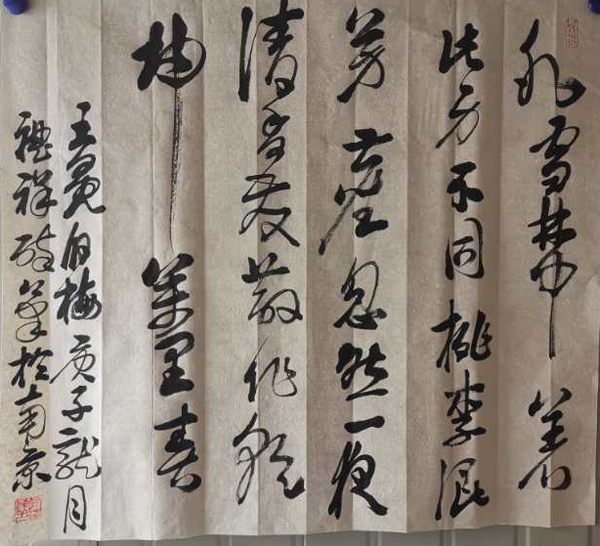 冰雪林中著
此身不同桃李混
芳塵忽然一夜
清香发散作乾
坤萬里春
王冕白梅庚子龍月
祥醉筆於南京